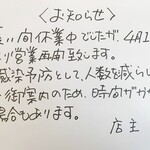 〈お知らせ〉
い間休業中でしたが、4月1
り営業再開致します。
感染予防として、人数を減らし
・街案内のため、時間がかか
場合もあります。
店主